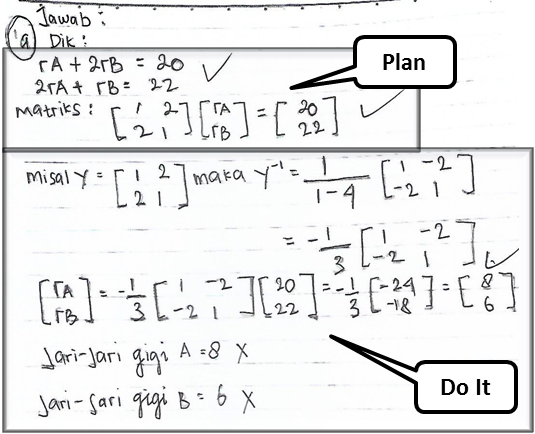 Jawab :
1a Dik :
rA + 2rB = 20 ✓
2rA + rB = 22
Plan
Matriks : [1 2; 2 1] [rA; rB] = [20; 22] ✓
misal Y = [1 2; 2 1] maka Y⁻¹ = 1/(1-4) [1 -2; -2 1]
= -1/3 [1 -2; -2 1] ✓
[rA; rB] = -1/3 [1 -2; -2 1] [20; 22] = -1/3 [-24; -18] = [8; 6]
Jari-Jari gigi A = 8 X
Jari-Jari gigi B = 6 X
Do It